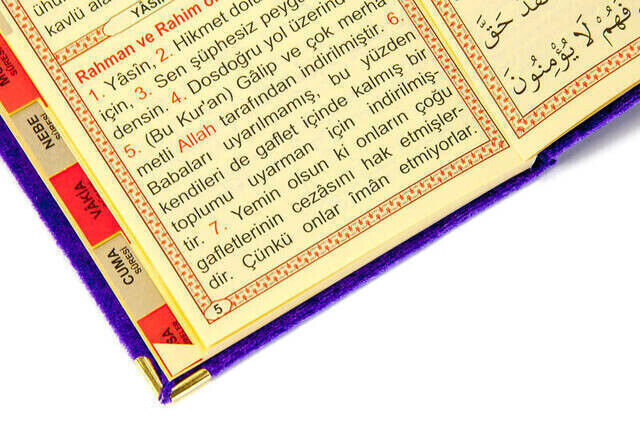 kavlü ala
YÂSÎN
Rahman ve Rahim
1. Yâsîn, 2. Hikmet
için, 3. Sen şüphesiz
densin. 4. Dosdoğru yol üzerinde
5. (Bu Kur'an) Gâlip ve çok merha
metli Allah tarafından indirilmiştir. 6.
Babaları uyarılmamış, bu yüzden
kendileri de gaflet içinde kalmış bir
toplumu uyarman için indirilmiş-
tir. 7. Yemin olsun ki onların çoğu
gafletlerinin cezâsını hak etmişler-
dir. Çünkü onlar imân etmiyorlar.
5
حَقَّ
فَهُمْ لَا يُؤْمِنُونَ
SÛRESİ
NEBE
SÛRESİ
VÂKIA
CUMA
SÛRESİ